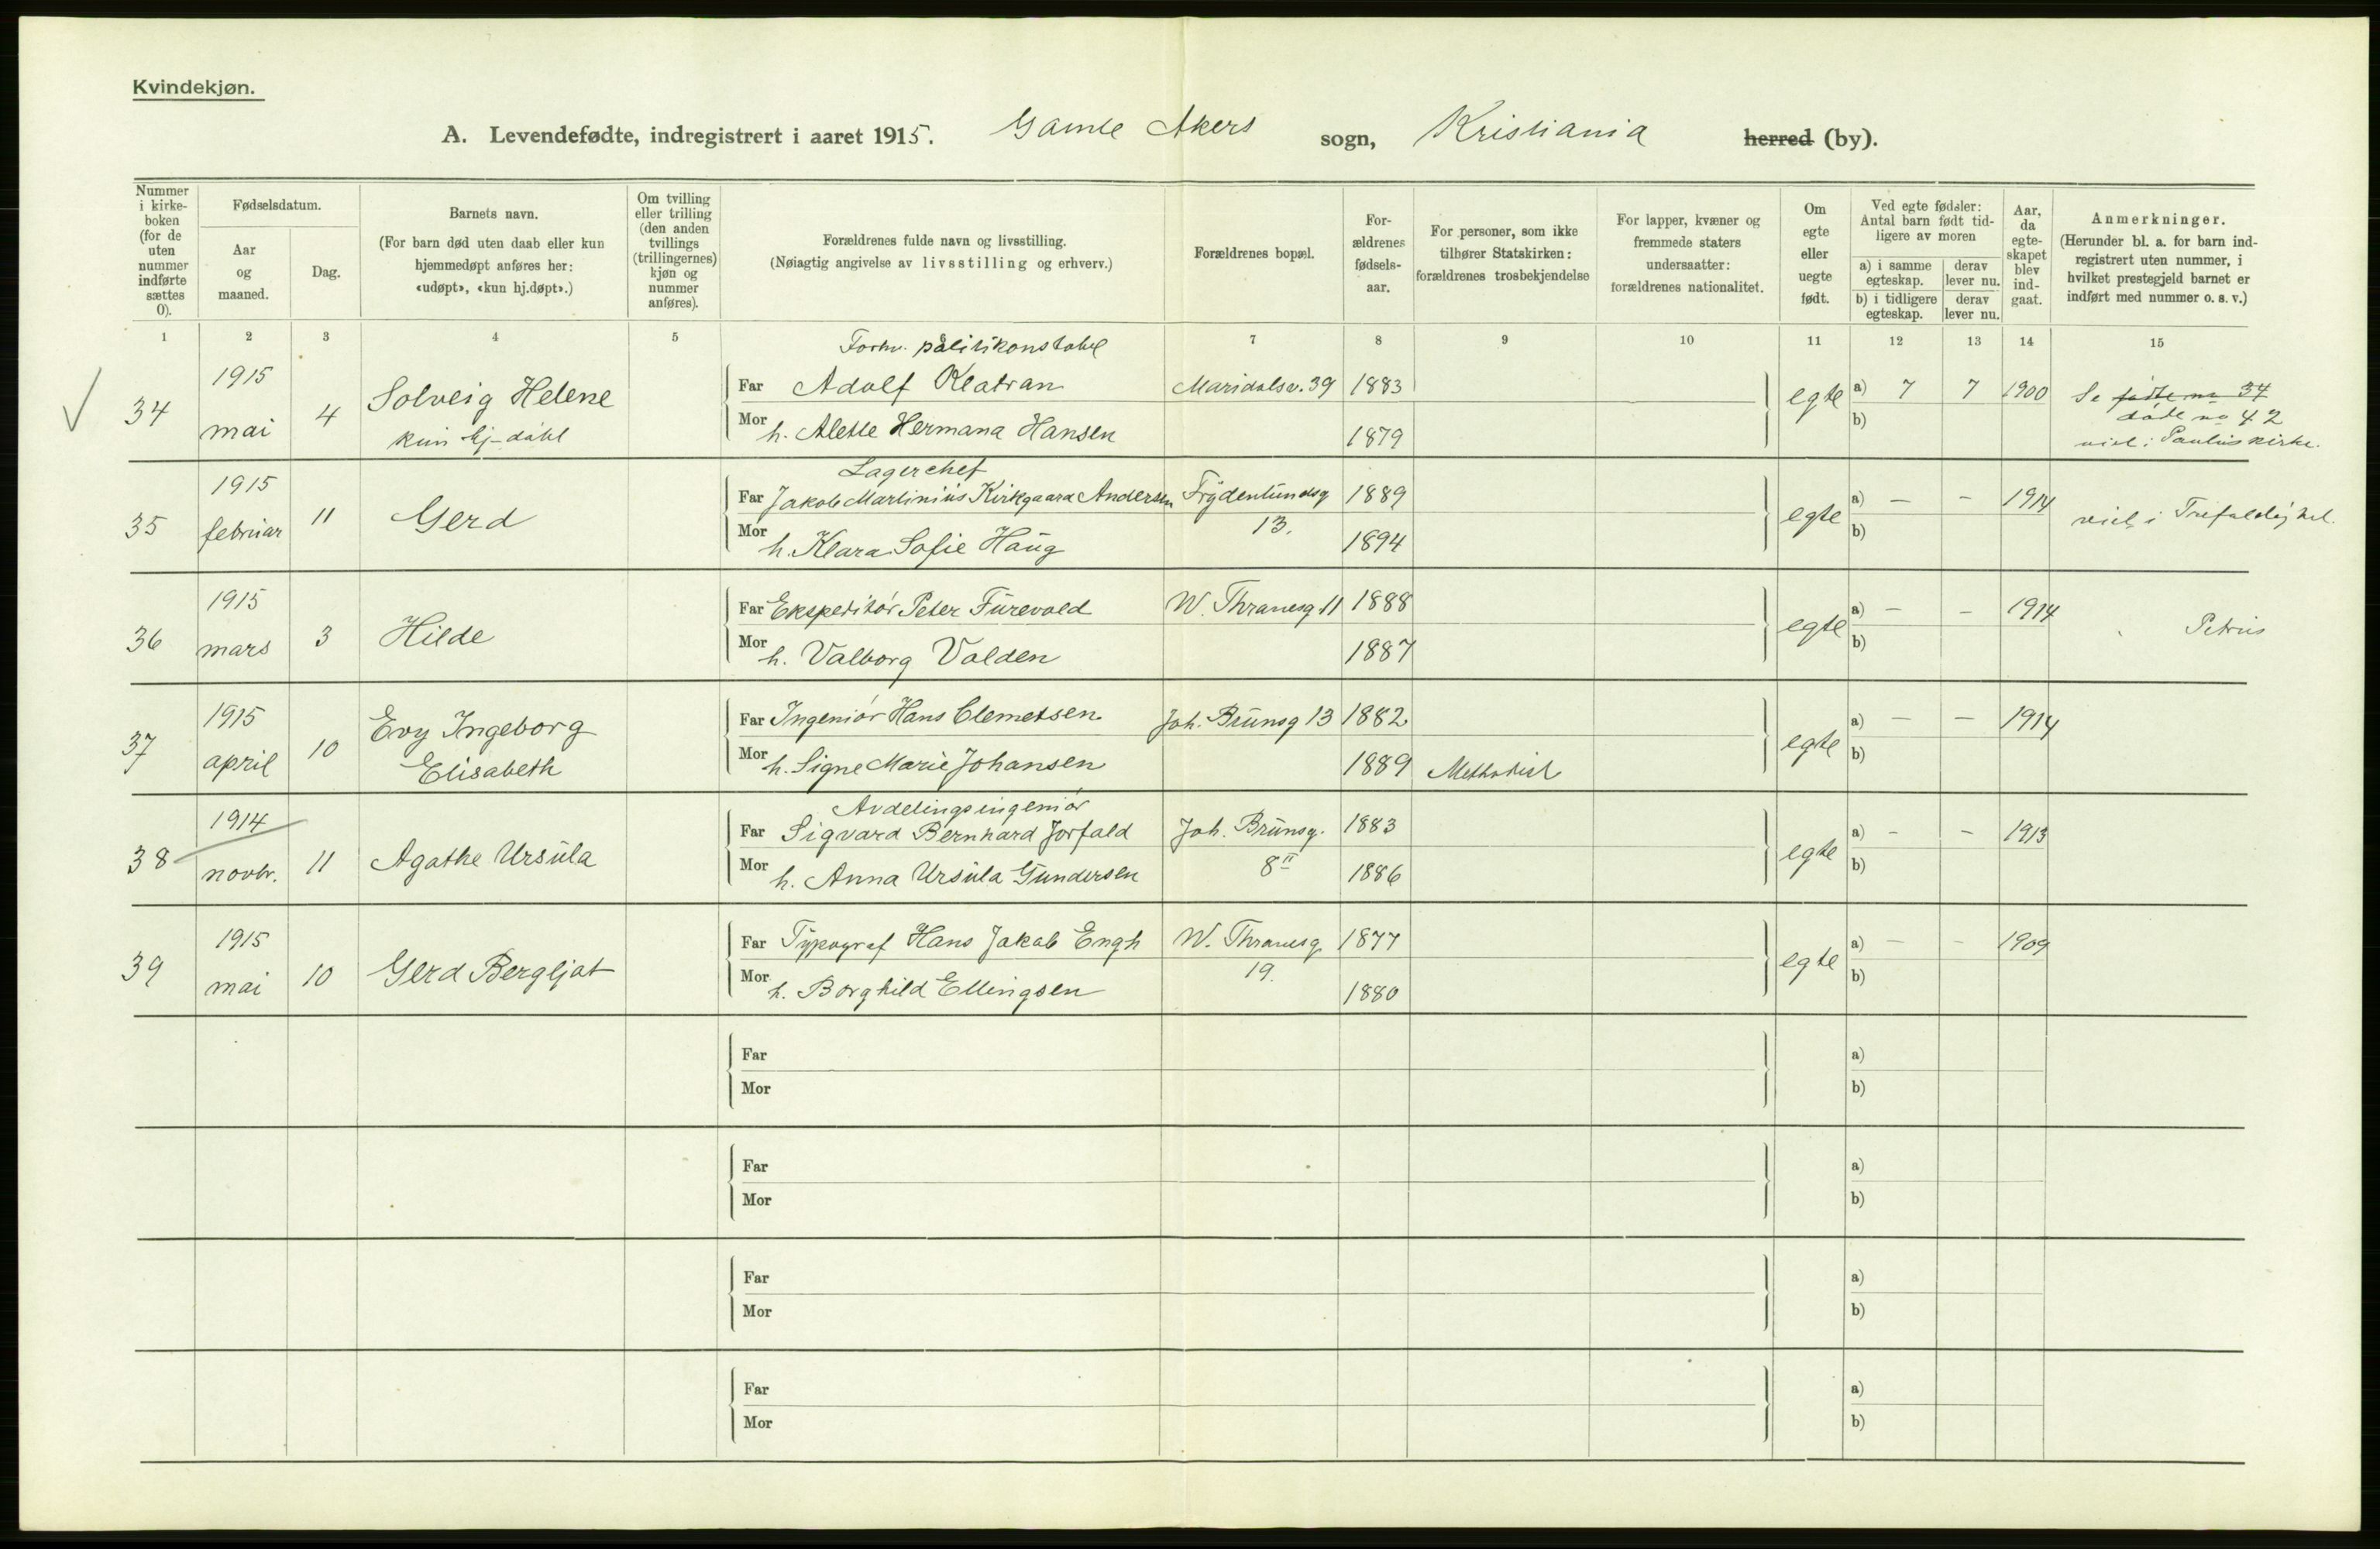 Kvindekjøn.
A. Levendefødte, indregistrert i aaret 1915. Gamle Akers sogn, Kristiania herred (by).
Nummer i kirkeboken (for de uten nummer indførte sættes 0).
Fødselsdatum.
Aar og maaned.
Dag.
Barnets navn.
(For barn død uten daab eller kun hjemmedøpt anføres her: «udøpt», «kun hj.døpt».)
Om tvilling eller trilling (den anden tvillings (trillingernes) kjøn og nummer anføres).
Forældrenes fulde navn og livsstilling.
(Nøiagtig angivelse av livsstilling og erhverv.)
Forældrenes bopæl.
Forældrenes fødselsaar.
For personer, som ikke tilhører Statskirken: forældrenes trosbekjendelse
For lapper, kvæner og fremmede staters undersaatter: forældrenes nationalitet.
Om egte eller uegte født.
Ved egte fødsler: Antal barn født tidligere av moren
a) i samme egteskap.
derav lever nu.
b) i tidligere egteskap.
derav lever nu.
Aar, da egteskapet blev indgaat.
Anmerkninger.
(Herunder bl. a. for barn indregistrert uten nummer, i hvilket prestegjeld barnet er indført med nummer o. s. v.)
1 2 3 4 5 7 8 9 10 11 12 13 14 15
Forhv. politikonstabel
34 1915 mai 4 Solveig Helene
kun hj-døbt
Far Adolf Klatran Maridalsv. 39 1883
Mor h. Alette Hermana Hansen 1879
egte a) 7 7 1900
b)
Se fødte no 34
døde no 42
viet i Paulus kirke.
Lagerchef
35 1915 februar 11 Gerd
Far Jakob Martinius Kirkgaard Andersen Frydenlundsg 13. 1889
Mor h. Klara Sofie Haug 1894
egte a) — - 1914
b)
viet i Trefoldigh.
36 1915 mars 3 Hilde
Far Ekspeditør Peter Furevold W. Thranesg 11 1888
Mor h. Valborg Valden 1887
egte a) — - 1914
b)
Petrus
37 1915 april 10 Evy Ingeborg
Elisabeth
Far Ingeniør Hans Clemetsen Joh. Brunsg 13 1882
Mor h. Signe Marie Johansen 1889 Methodist
egte a) — — 1914
b)
Avdelingsingeniør
38 1914 novbr. 11 Agathe Ursula
Far Sigvard Bernhard Jorfald Joh. Brunsg. 8 II 1883
Mor h. Anna Ursula Gundersen 1886
egte a) - - 1913
b)
39 1915 mai 10 Gerd Bergljot
Far Typograf Hans Jakob Engh W. Thranesg 19. 1877
Mor h. Borghild Ellingsen 1880
egte a) — - 1909
b)
Far a)
Mor b)
Far a)
Mor b)
Far a)
Mor b)
Far a)
Mor b)